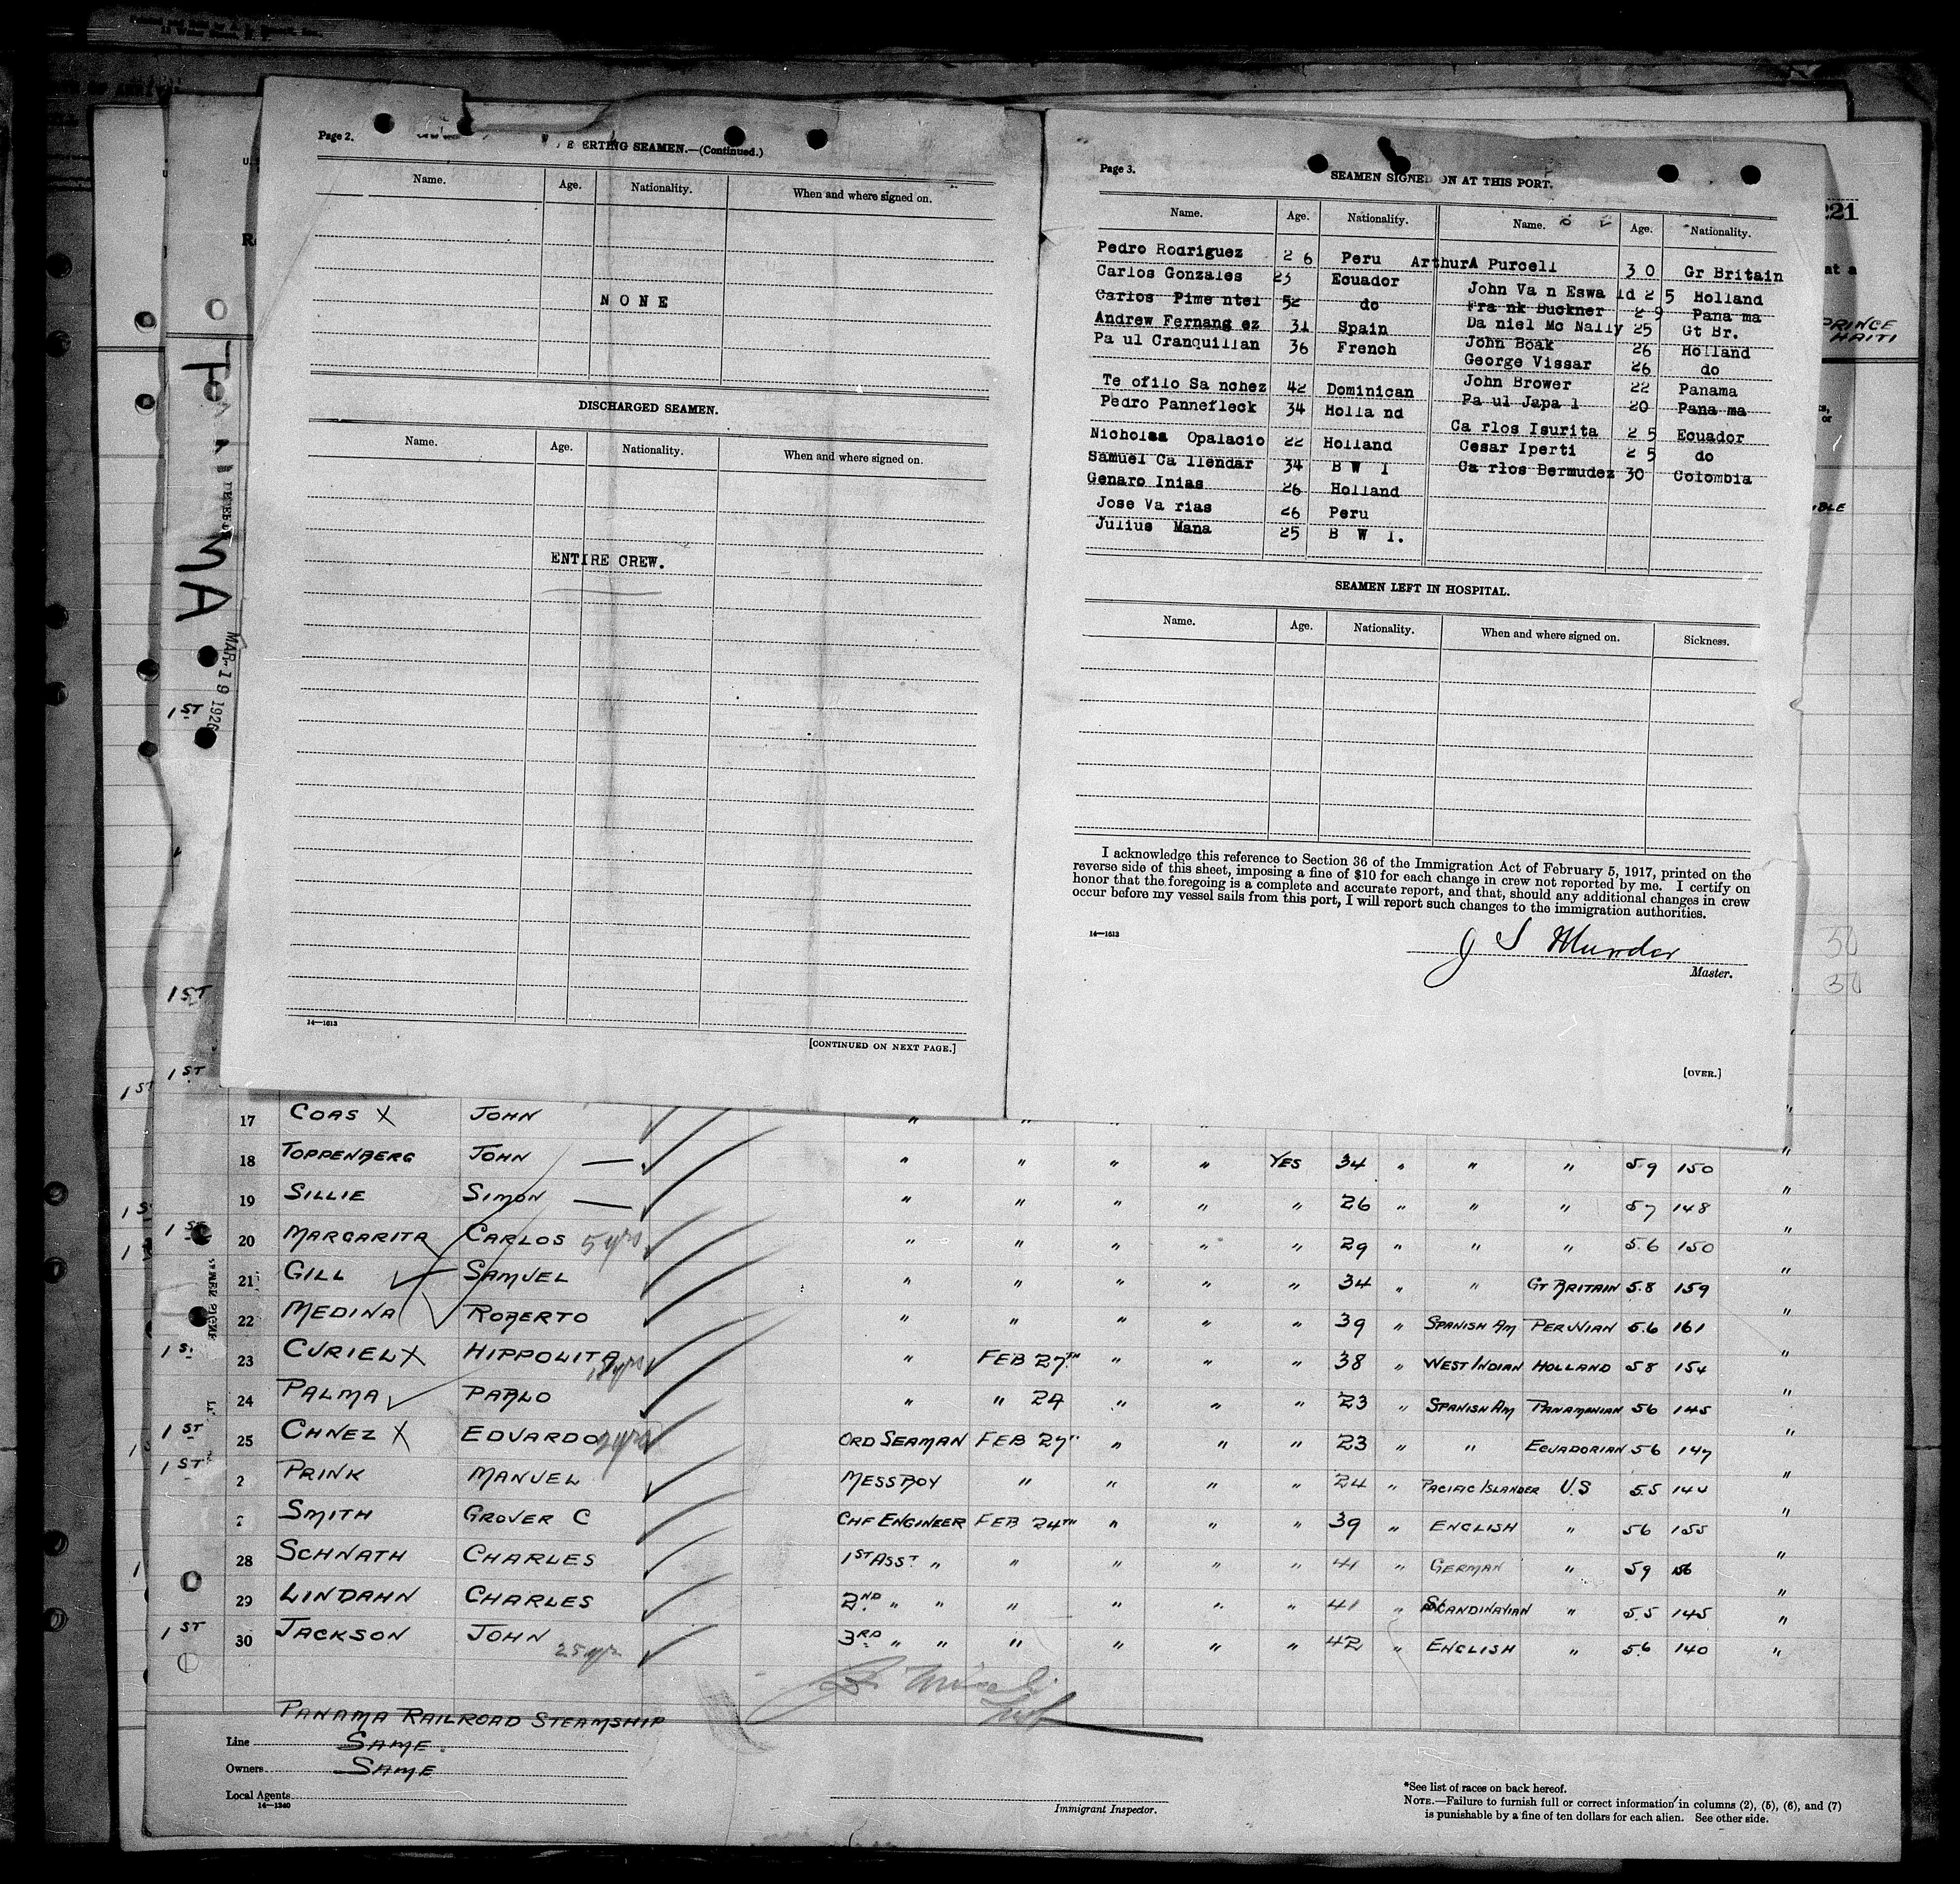 Page 2.
ERTING SEAMEN.—(Continued.)
Name. Age. Nationality. When and where signed on.
NONE
DISCHARGED SEAMEN.
Name. Age. Nationality. When and where signed on.
ENTIRE CREW.
14—1613
[CONTINUED ON NEXT PAGE.]
Page 3.
SEAMEN SIGNED ON AT THIS PORT.
Name. Age. Nationality. Name. Age. Nationality.
Pedro Rodriguez 26 Peru ArthurA Purcell 30 Gr Britain
Carlos Gonzales 23 Ecuador John Van Eswald 25 Holland
Carlos Pimentel 52 do Frank Buckner 29 Panama
Andrew Fernangez 31 Spain Daniel McNally 25 Gt Br.
Paul Cranquillan 36 French John Boak 26 Holland
George Vissar 26 do
Teofilo Sanchez 42 Dominican John Brower 22 Panama
Pedro Pannefleck 34 Holland Paul Japal 20 Panama
Nicholas Opalacio 22 Holland Carlos Isurita 25 Ecuador
Samuel Callendar 34 B W I Cesar Iperti 25 do
Genaro Inias 26 Holland Carlos Bermudez 30 Colombia
Jose Varias 26 Peru
Julius Mana 25 B W I.
SEAMEN LEFT IN HOSPITAL.
Name. Age. Nationality. When and where signed on. Sickness.
I acknowledge this reference to Section 36 of the Immigration Act of February 5, 1917, printed on the
reverse side of this sheet, imposing a fine of $10 for each change in crew not reported by me. I certify on
honor that the foregoing is a complete and accurate report, and that, should any additional changes in crew
occur before my vessel sails from this port, I will report such changes to the immigration authorities.
14—1613
Master.
[OVER.]
221
at a
PRINCE
HAITI
MAR 19 1926
1ST
1ST
1ST
1ST
50
30
17 COAS X JOHN " "
18 TOPPENBERG JOHN — " " " " YES 34 " " " 5 9 150 "
19 SILLIE SIMON — " " " " " 26 " " " 5 7 148 "
20 MARGARITA CARLOS 5 yrs " " " " " 29 " " " 5.6 150 "
21 GILL SAMUEL " " " " " 34 " " GT BRITAIN 5.8 159 "
22 MEDINA ROBERTO " " " " " 39 " SPANISH AM PERUVIAN 5.6 161 "
23 CURIEL X HIPPOLITA " FEB 27TH " " " 38 " WEST INDIAN HOLLAND 5 8 154 "
24 PALMA PABLO " " 24 " " " 23 " SPANISH AM PANAMANIAN 5 6 145 "
1ST 25 CHNEZ X EDUARDO ORD SEAMAN FEB 27" " " " 23 " " ECUADORIAN 5 6 147 "
1ST 2 PRINK MANUEL MESSBOY " " " " 24 " PACIFIC ISLANDER U.S 5.5 144 "
7 SMITH GROVER C CHF ENGINEER FEB 24TH " " " 39 " ENGLISH " 5 6 155 "
28 SCHNATH CHARLES 1ST ASST " " " " " 41 " GERMAN " 5 9 "
29 LINDAHN CHARLES 2ND " " " " " " 41 " SCANDINAVIAN " 5.5 145 "
1ST 30 JACKSON JOHN 25 yrs 3RD " " " " " " 42 " ENGLISH " 5.6 140 "
PANAMA RAILROAD STEAMSHIP
Line SAME.
Owners SAME
Local Agents
14—1240
Immigrant Inspector.
*See list of races on back hereof.
NOTE.—Failure to furnish full or correct information in columns (2), (5), (6), and (7)
is punishable by a fine of ten dollars for each alien. See other side.